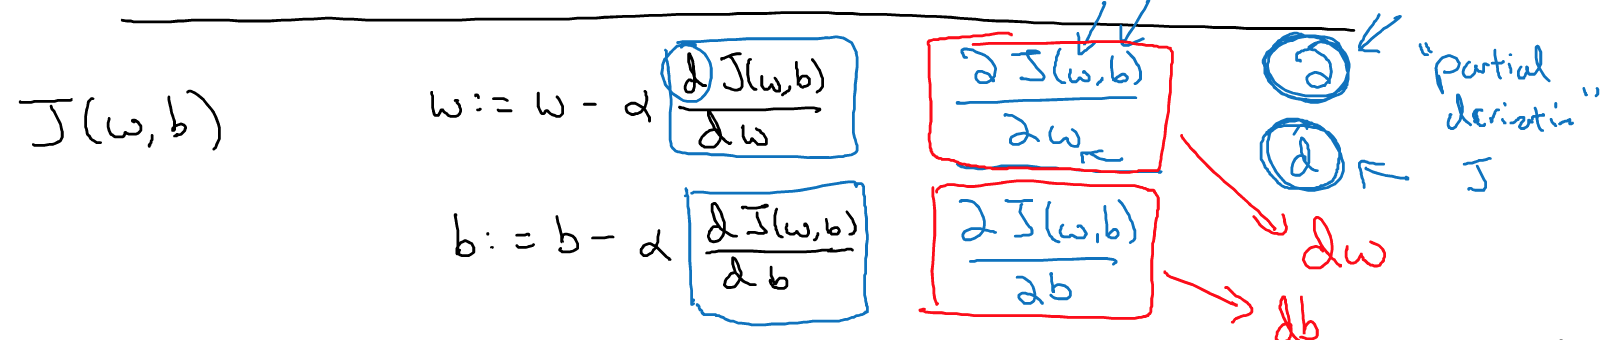 J(w,b)
w := w - α d J(w,b) / dw
∂ J(w,b) / ∂w
∂
"partial derivative"
d
J
b := b - α d J(w,b) / db
∂ J(w,b) / ∂b
dw
db